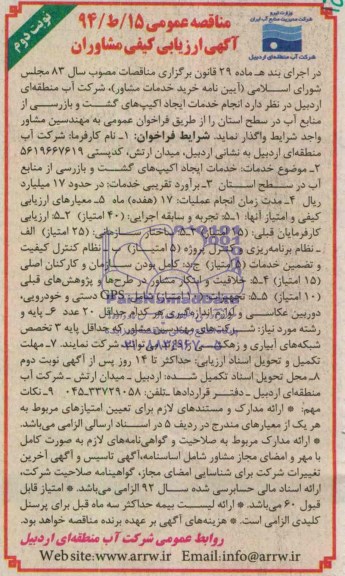 نوبت دوم
وزارت نیرو
شرکت مدیریت منابع آب ایران
شرکت آب منطقه‌ای اردبیل
مناقصه عمومی ۱۵/ط/۹۴
آگهی ارزیابی کیفی مشاوران
در اجرای بند هـ ماده ۲۹ قانون برگزاری مناقصات مصوب سال ۸۳ مجلس
شورای اسلامی (آیین نامه خرید خدمات مشاور)، شرکت آب منطقه‌ای
اردبیل در نظر دارد انجام خدمات ایجاد اکیپ‌های گشت و بازرسی از
منابع آب در سطح استان را از طریق فراخوان عمومی به مهندسین مشاور
واجد شرایط واگذار نماید. شرایط فراخوان: ۱ـ نام کارفرما: شرکت آب
منطقه‌ای اردبیل به نشانی اردبیل، میدان ارتش، کدپستی ۵۶۱۹۶۶۷۶۱۹
۲ـ موضوع خدمات: خدمات ایجاد اکیپ‌های گشت و بازرسی از منابع
آب در سطح استان ۳ـ برآورد تقریبی خدمات: در حدود ۱۷ میلیارد
ریال ۴ـ مدت زمان انجام عملیات: ۱۷ (هفده) ماه ۵ـ معیارهای ارزیابی
کیفی و امتیاز آنها: ۱ـ۵: تجربه و سابقه اجرایی: (۴۰ امتیاز) ۲ـ۵: ارزیابی
کارفرمایان قبلی: (۱۵ امتیاز) ۳ـ۵: ساختار سازمانی: (۲۵ امتیاز) الف
ـ نظام برنامه‌ریزی و کنترل پروژه (۵ امتیاز) ب ـ نظام کنترل کیفیت
و تضمین خدمات (۵ امتیاز) ج: کامل بودن سازمان و کارکنان اصلی
(۱۵ امتیاز) ۴ـ۵: خلاقیت و ابتکار مشاور در طرح‌ها و پژوهش‌های قبلی
(۱۰ امتیاز) ۵ـ۵: تجهیزات (۱۰ امتیاز) شامل: GPS دستی و خودرویی،
دوربین عکاسی و لوازم اندازه‌گیری هر کدام حداقل ۲۰ عدد ۶ـ پایه و
رشته مورد نیاز: شرکت‌های مهندسین مشاور که حداقل پایه ۳ تخصص
شبکه‌های آبیاری و زهکشی توانند شرکت نمایند. ۷ـ مهلت
تکمیل و تحویل اسناد ارزیابی: حداکثر تا ۱۴ روز پس از آگهی نوبت دوم
۸ـ محل تحویل اسناد تکمیل شده: اردبیل ـ میدان ارتش ـ شرکت آب
منطقه‌ای اردبیل ـ دفتر قراردادها ـ تلفن: ۳۳۷۲۹۰۵۸-۰۴۵ ۹ـ نکات
مهم: * ارائه مدارک و مستندهای لازم برای تعیین امتیازهای مربوط به
هر یک از معیارهای مندرج در ردیف ۵ در اسناد ارسالی الزامی می‌باشد.
* ارائه مدارک مربوط به صلاحیت و گواهی‌نامه‌های لازم به صورت کامل
با مهر و امضای مجاز مشاور شامل اساسنامه، آگهی تاسیس و آگهی آخرین
تغییرات شرکت برای شناسایی امضای مجاز، گواهینامه صلاحیت شرکت،
ارائه اسناد مالی حسابرسی شده سال ۹۲ الزامی می‌باشد. * امتیاز قابل
قبول ۶۰ می‌باشد. * ارائه لیست بیمه حداکثر سه ماه قبل برای پرسنل
کلیدی الزامی است. * هزینه‌های آگهی بر عهده برنده مناقصه خواهد بود.
روابط عمومی شرکت آب منطقه‌ای اردبیل
Web site:www.arrw.ir Email:info@arrw.ir